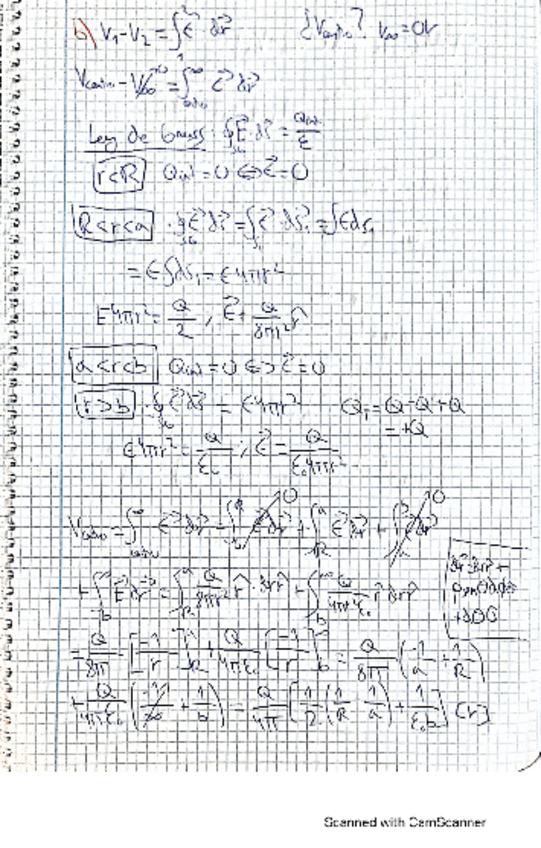 b) V₁-V₂=∫₁² E⃗ dr⃗ ¿Vcentro? V∞=0V
Vcentro-V∞=∫centro^∞ E⃗ dr⃗
Ley de Gauss: ∮ E⃗ ds⃗ = Qint/ε
r<R Qint=0 ⇔ E⃗=0
R<r<a · ∮ E⃗ ds⃗ = ∫ E⃗ ds⃗₁ = ∫ E ds₁
= E∫ds₁ = E4πr²
E4πr² = Q/2 ; E⃗ = Q/8πr² r̂
a<r<b Qint=0 ⇔ E⃗=0
r>b · ∮ E⃗ ds⃗ = E4πr² Qi=Q-Q+Q
=+Q
E4πr² = Q/ε₀ ; E⃗ = Q/ε₀4πr²
Vcentro = ∫centro^∞ E⃗ dr⃗ = ∫ E⃗ dr⃗ 0 + ∫R^a E⃗ dr⃗ + ∫a^b E⃗ dr⃗ 0
+ ∫b^∞ E⃗ dr⃗ = ∫R^a Q/8πr² r̂ · dr r̂ + ∫b^∞ Q/4πr²ε₀ r̂ dr r̂
= Q/8π [-1/r]R^a + Q/4πε₀ [-1/r]b^∞ = Q/8π (-1/a + 1/R)
+ Q/4πε₀ (-1/∞ + 1/b) = Q/4π [1/2 (1/R - 1/a) + 1/ε₀b] [V]
Scanned with CamScanner